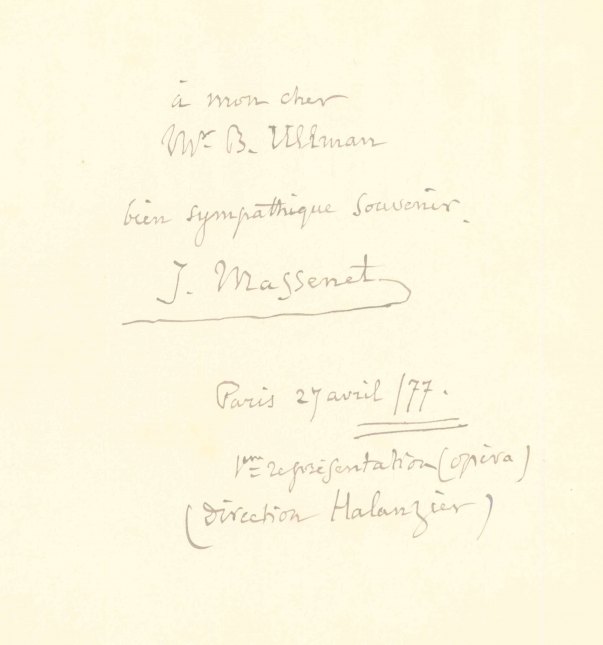 à mon cher
Mr B. Ullman
bien sympathique souvenir.
J. Massenet
Paris 27 avril /77.
1ère représentation (opéra)
(Direction Halanzier)